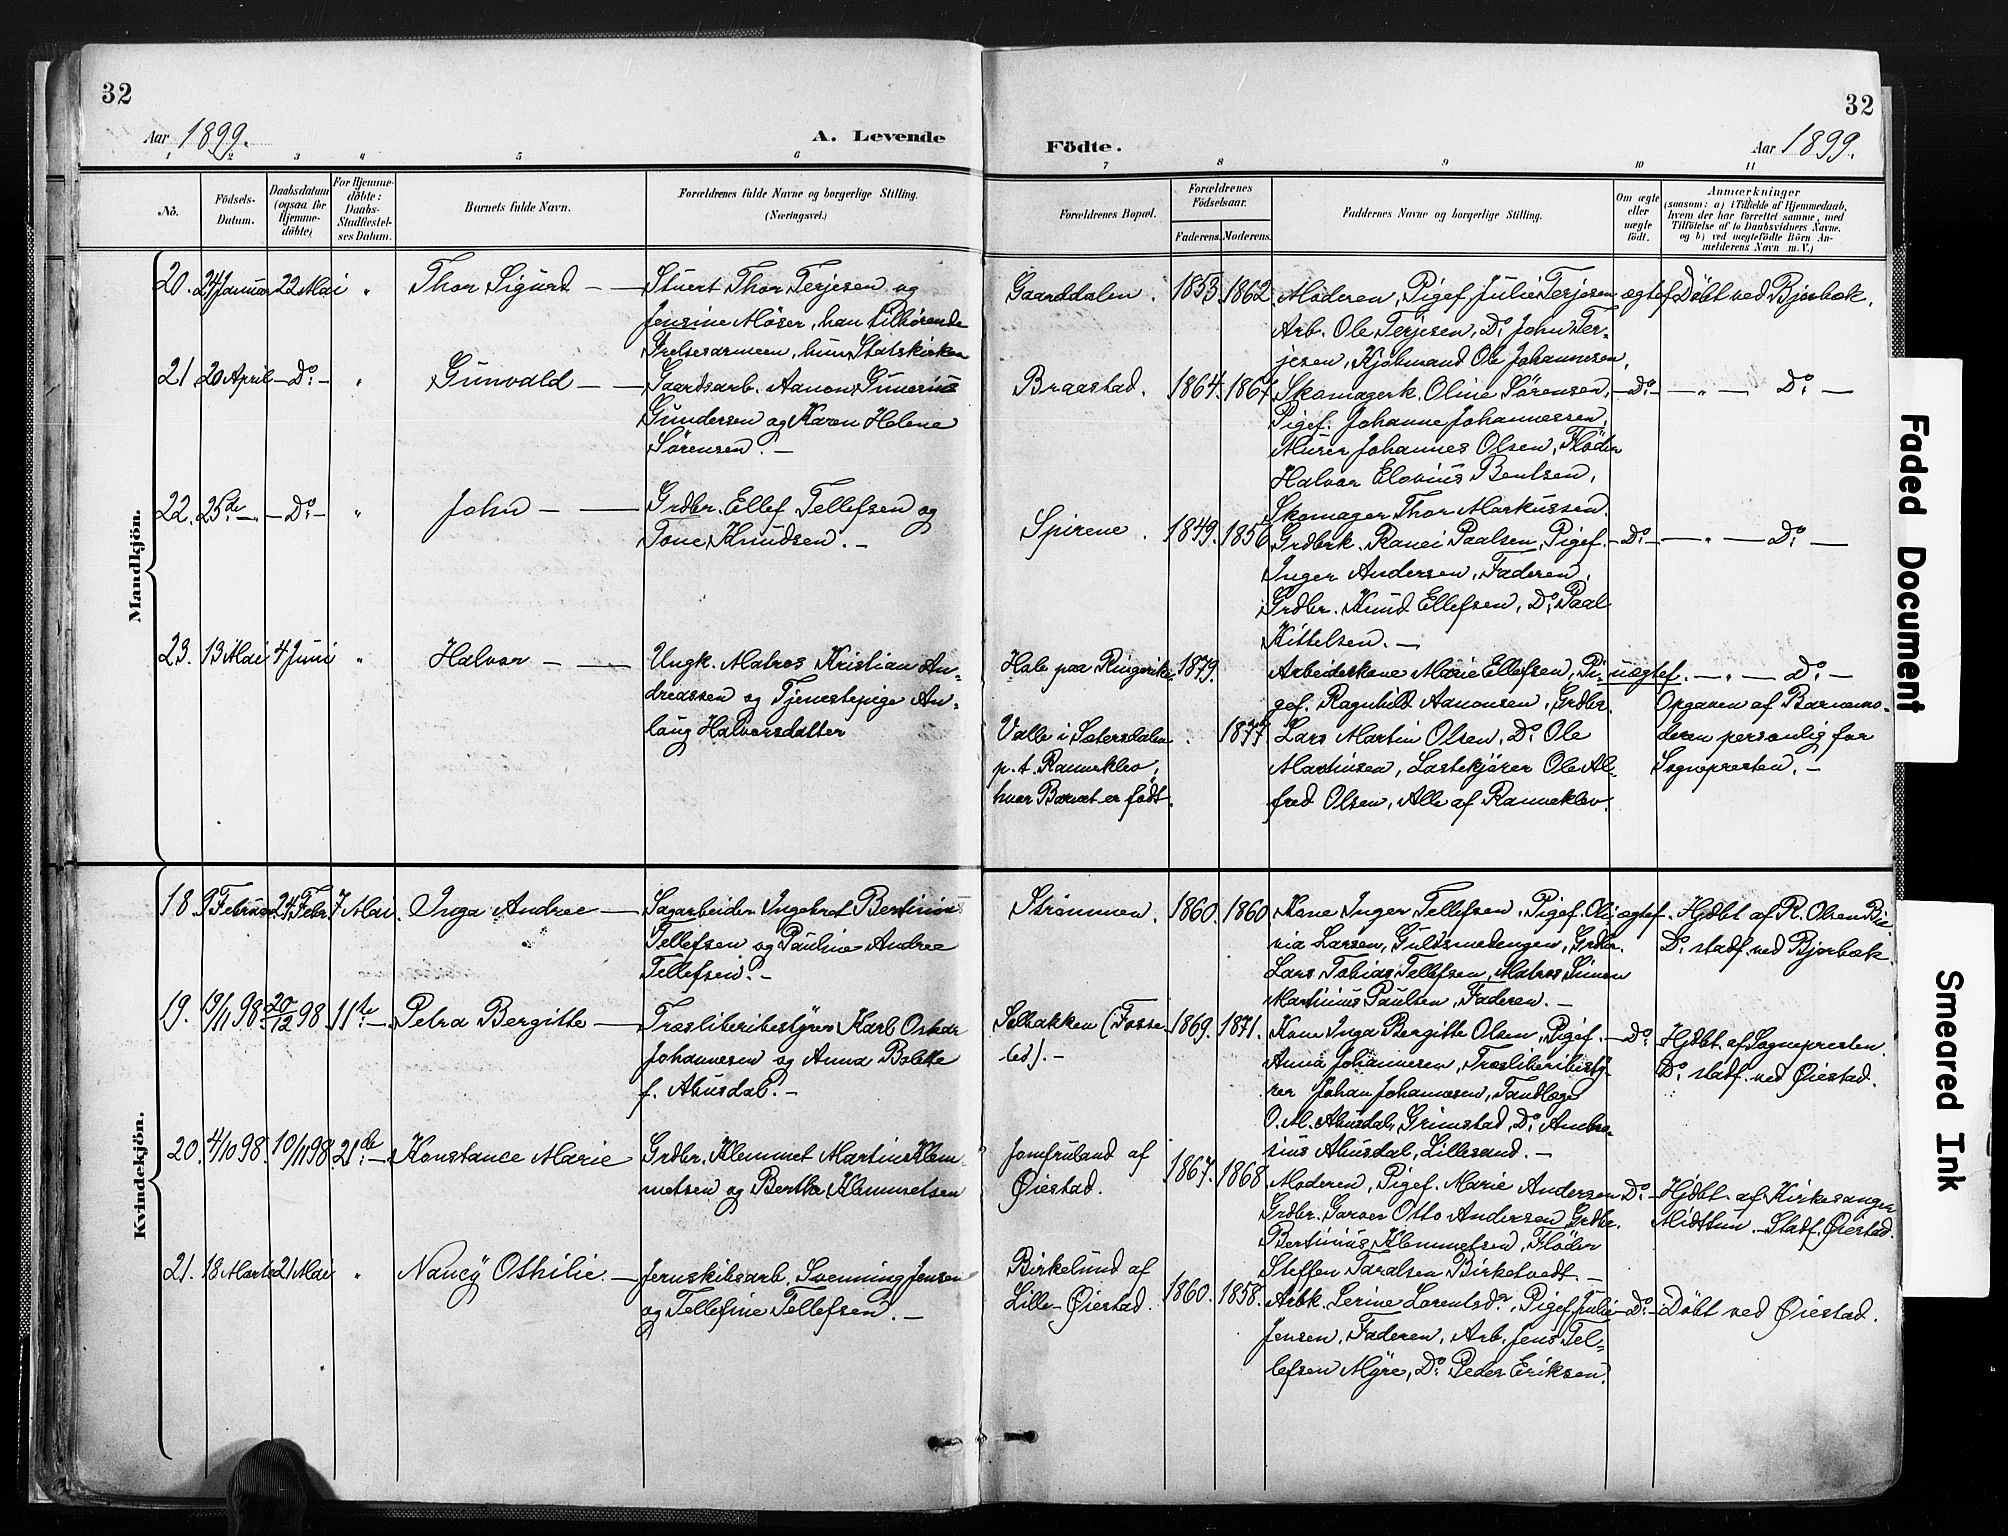 32
32
Aar 1899.
A. Levende
Födte.
Aar 1899.
1 2 3 4 5 6 7 8 9 10 11
No.
Födsels-
Datum.
Daabsdatum
(ogsaa for
Hjemme-
döbte)
For Hjemme-
döbte:
Daabs-
Stadfæstel-
ses Datum.
Barnets fulde Navn.
Forældrenes fulde Navne og borgerlige Stilling.
(Næringsvei.)
Forældrenes Bopæl.
Forældrenes
Födselsaar.
Faderens. Moderens.
Faddernes Navne og borgerlige Stilling.
Om ægte
eller
uægte
födt.
Anmærkninger
(saasom: a) i Tilfælde af Hjemmedaab,
hvem der har forrettet samme, med
Tilföielse af to Daabsvidners Navne,
og b) ved uægtefödte Börn An-
melderens Navn m. V.)
Mandkjön.
20. 24 Januar 22 Mai " Thor Sigurd —
Stuert Thor Terjesen og
Jensine Moser, han tilhörende
Frelsesarmeen, hun Statskirken
Gaarddalen. 1853. 1862.
Moderen, Pigef. Julie Terjesen
Arb. Ole Terjesen, Do John Ter-
jesen, Kjöbmand Ole Johannesen,
ægtef. Döbt ved Bjorbæk.
21 20 April — Do — " Gunvald —
Gaardsarb. Aanon Gunerius
Gundersen og Karen Helene
Sörensen. —
Braastad. 1864. 1867
Skomagerk. Oline Sörensen,
Pigef. Johanne Johannessen,
Murer Johannes Olsen, Flöder
Halvor Elovius Bentsen,
Skomager Thor Markussen.
— Do — — " — Do —
22. 25de — Do — " John —
Grdbr. Ellef Tellefsen og
Tone Knudsen. —
Spirene. 1849. 1856
Grdbrk. Ranei Paalsen, Pigef.
Inger Andersen, Faderen,
Grdbr. Knud Ellefsen, Do Paal
Kittelsen. —
— Do — — " — Do —
23. 13 Mai 4 Juni " Halvor —
Ungk. Matros Kristian An-
dreassen og Tjenestepige An-
laug Halvorsdatter
Hole paa Ringerike 1879.
Valle i Sætersdalen. 1877
p.t. Ranneklev,
hvor Barnet er födt.
Arbeiderkone Marie Ellefsen, Pi-
gef. Ragnhild Aanonsen, Grdbr.
Lars Martin Olsen, Do Ole
Martinsen, Lastekjører Ole Al-
fred Olsen, Alle af Ranneklev.
uægtef. — " — Do —
Opgaven af Barnemo-
deren personlig for
Sognepresten. —
Kvindekjön.
18. 9 Februar 24 Febr 7 Mai. Inga Andrea —
Sagarbeider Ingebret Bertinius
Tellefsen og Pauline Andrea
Tellefsen. —
Strömmen. 1860. 1860
Kone Inger Tellefsen, Pigef. Oli-
via Larsen, Guldsmedengen, Grdbr.
Lars Tobias Tellefsen, Matros Simon
Martinius Paulsen, Faderen. —
ægtef. Hjdbt af R. Olsen Bie
Do stadf. ved Bjorbæk.
19. 19/11 98. 20/12 98. 11te — Petra Bergitte —
Træsliberibestyrer Karl Oskar
Johannesen og Anna Bolette
f. Ahusdal. —
Solbakken (Fosse-
led). — 1869. 1871.
Kone Inga Bergitte Olsen, Pigef.
Anna Johannesen, Træsliberibesty-
rer Johan Johannesen, Tandlæge
O. M. Ahusdal, Grimstad, Do Ambro-
sius Ahusdal, Lillesand. —
— Do Hjdbt. af Sognepresten.
Do stadf. ved Öiestad.
20. 4/10 98. 10/11 98 21de — Konstance Marie
Grdbr. Klemmet Martin Klem-
metsen og Berthe Klemmetsen
Jomfruland af
Öiestad. 1867. 1868.
Moderen, Pigef. Marie Andersen
Grdbr. Garver Otto Andersen, Grdbr.
Bertinius Klemmetsen, Flöder
Steffen Taralsen Birketvedt. —
Do — Hjdbt. af Kirkesanger
Midttun. Stadf. Öiestad.
21. 18 Marts 21 Mai " Nancy Othilie —
Jernskibsarb. Svenning Jensen
og Tellefine Tellefsen. —
Birkelund af
Lille-Öiestad. 1860. 1858.
Arbk. Serine Lorentsdr, Pigef. Julie
Jensen, Faderen, Arb. Jens Tel-
lefsen Myre, Do Peder Eriksen.
— Do — Döbt ved Öiestad.
Faded Document
Smeared Ink